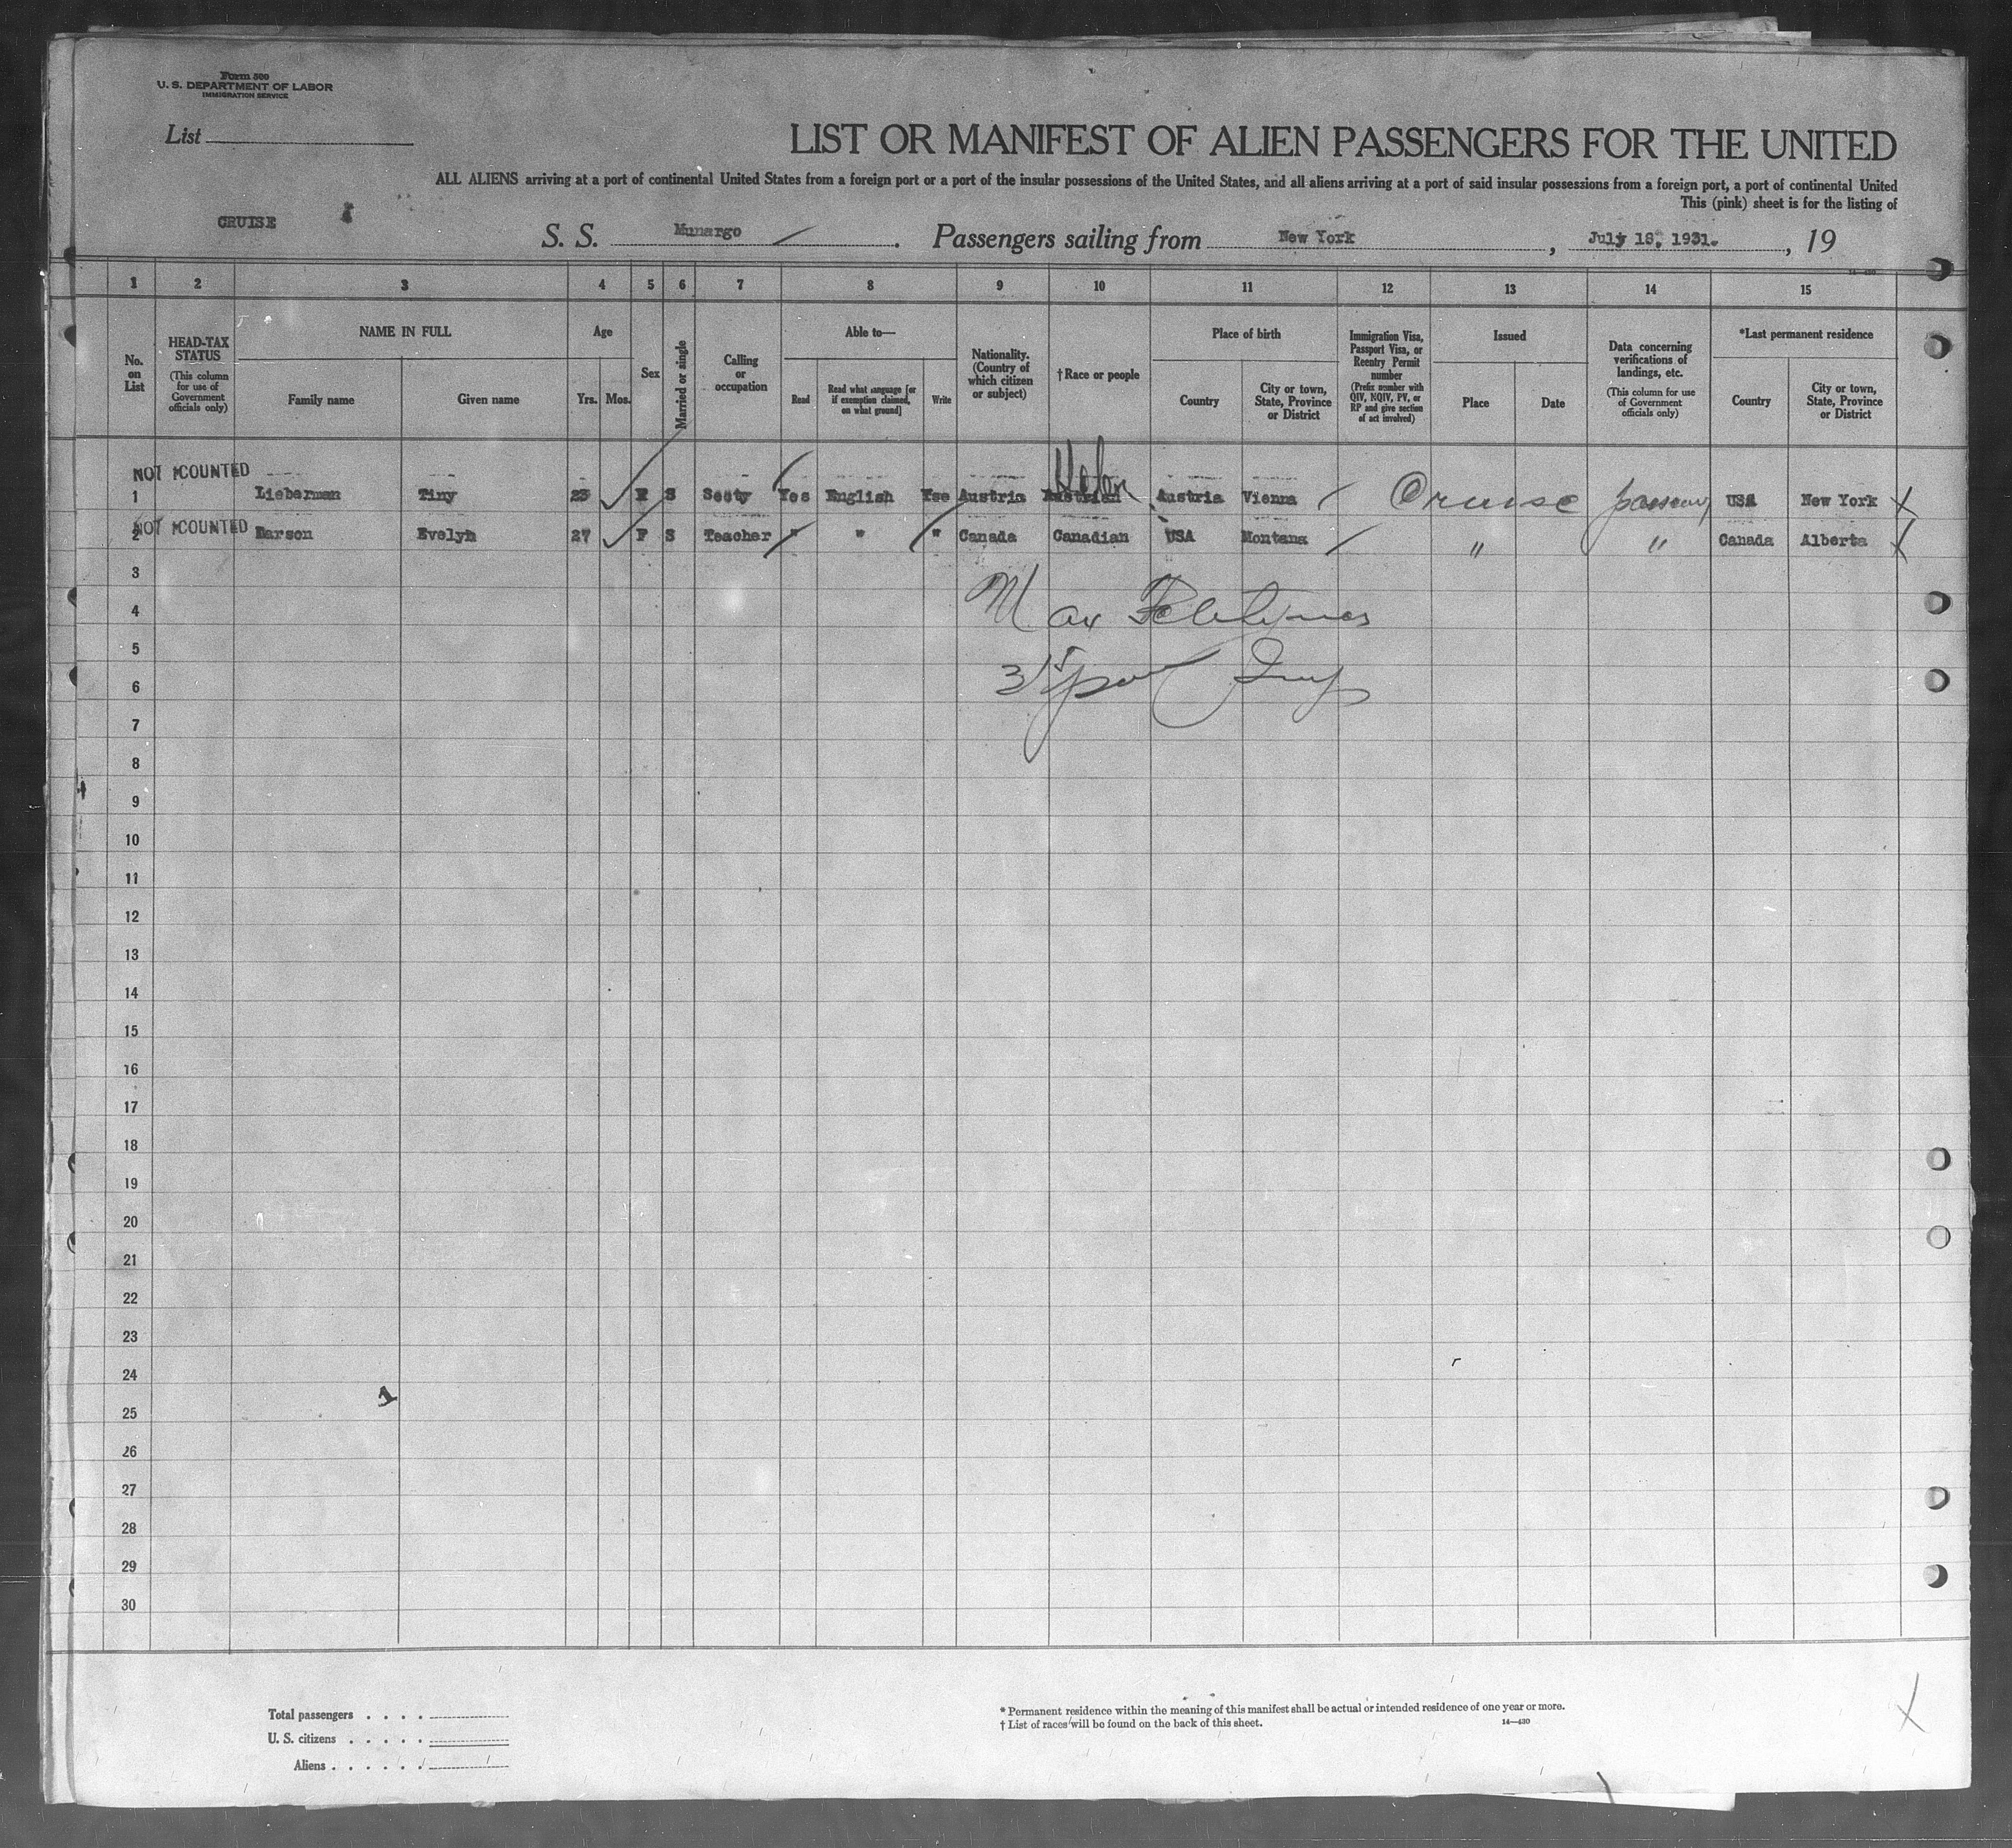 Form 500
U. S. DEPARTMENT OF LABOR
IMMIGRATION SERVICE
List
LIST OR MANIFEST OF ALIEN PASSENGERS FOR THE UNITED
ALL ALIENS arriving at a port of continental United States from a foreign port or a port of the insular possessions of the United States, and all aliens arriving at a port of said insular possessions from a foreign port, a port of continental United
This (pink) sheet is for the listing of
CRUISE
S. S. Munargo . Passengers sailing from New York , July 18, 1931. , 19
1 2 3 4 5 6 7 8 9 10 11 12 13 14 15
No. on List
HEAD-TAX STATUS (This column for use of Government officials only)
NAME IN FULL
Family name
Given name
Age
Yrs. Mos.
Sex
Married or single
Calling or occupation
Able to—
Read
Read what language [or if exemption claimed, on what ground]
Write
Nationality. (Country of which citizen or subject)
†Race or people
Place of birth
Country
City or town, State, Province or District
Immigration Visa, Passport Visa, or Reentry Permit number (Prefix number with QIV, NQIV, PV, or RP and give section of act involved)
Issued
Place
Date
Data concerning verifications of landings, etc. (This column for use of Government officials only)
*Last permanent residence
Country
City or town, State, Province or District
NOT COUNTED
1 Lieberman Tiny 23 F S Secty Yes English Yse Austria Austrian Austria Vienna Cruise USA New York X
NOT COUNTED
2 Evelyn 27 F S Teacher " " " Canada Canadian USA Montana " " Canada Alberta X
3
Max
4
5
6
7
8
9
10
11
12
13
14
15
16
17
18
19
20
21
22
23
24
25
26
27
28
29
30
Total passengers . . . .
U. S. citizens . . . . .
Aliens . . . . . .
* Permanent residence within the meaning of this manifest shall be actual or intended residence of one year or more.
† List of races will be found on the back of this sheet.
14—430
X